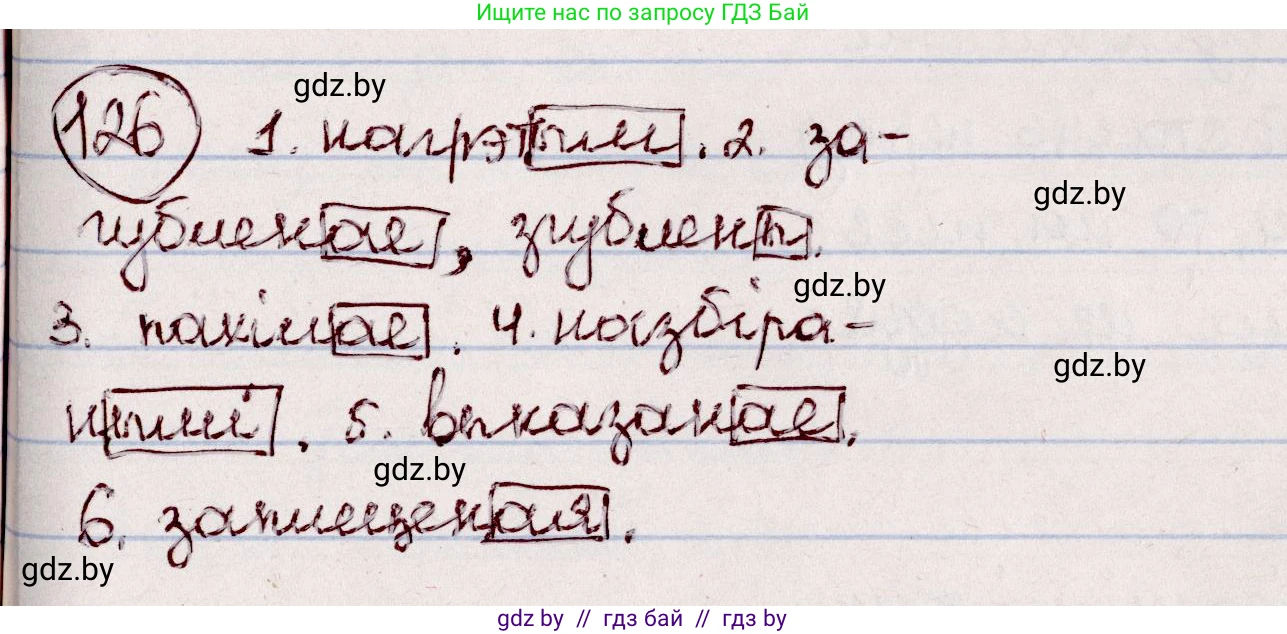 Ищите нас по запросу ГДЗ Бай
gdz.by
126 1. нагрэтым. 2. за-
gdz.by
губленае, згублены.
gdz.by
3. пахілае. 4. назбіра-
gdz.by
нымі. 5. выказанае.
gdz.by
6. заплешчаная.
gdz.by
gdz.by // гдз бай // гдз by